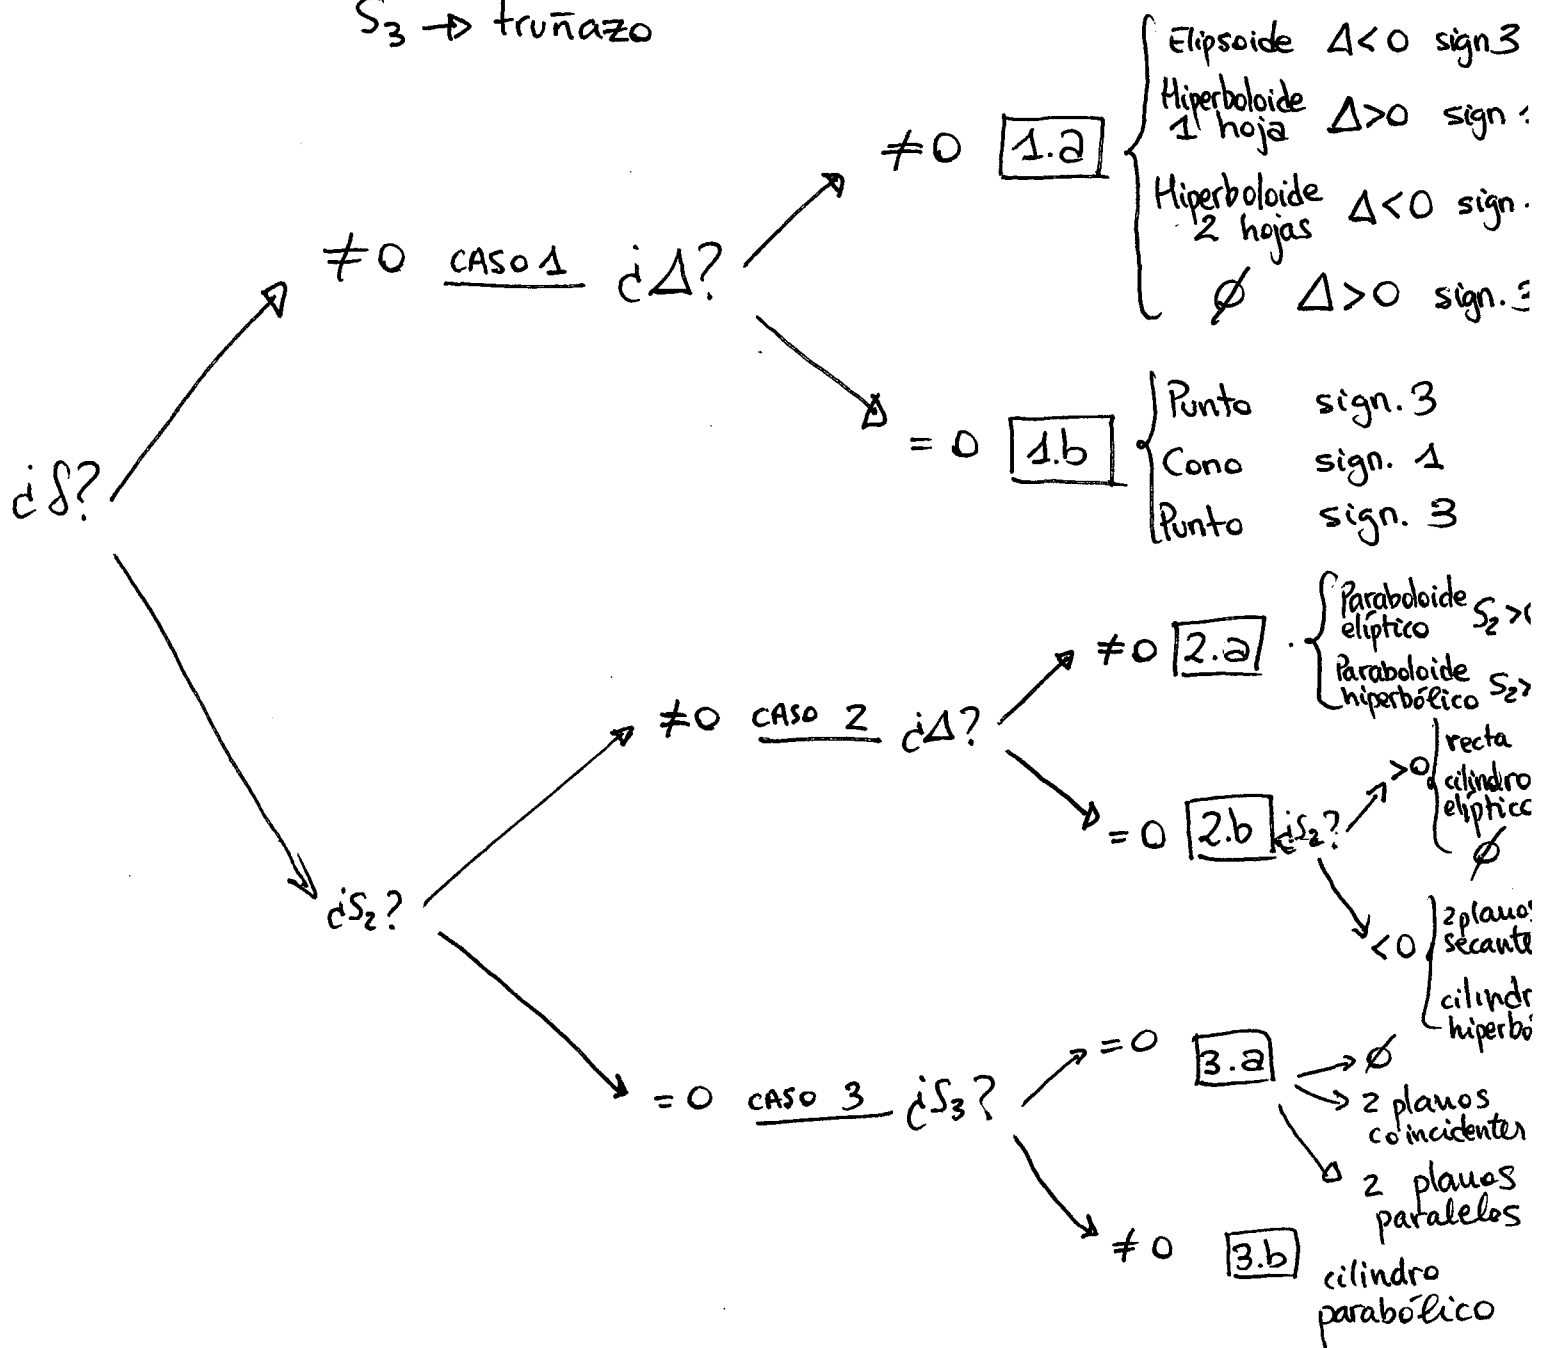 S₃ → truñazo
Elipsoide Δ<0 sign 3
Hiperboloide
1 hoja Δ>0 sign
≠0 1.a
Hiperboloide
2 hojas Δ<0 sign.
≠0 CASO 1 ¿Δ?
∅ Δ>0 sign. 3
Punto sign. 3
=0 1.b
Cono sign. 1
¿δ?
Punto sign. 3
≠0 2.a
Paraboloide
elíptico S₂>0
Paraboloide
hiperbólico S₂>
≠0 CASO 2 ¿Δ?
=0 2.b ¿S₂?
>0
recta
cilindro
elíptico
∅
¿S₂?
<0
2 planos
secante
cilindr
hiperbó
=0 CASO 3 ¿S₃?
=0 3.a
∅
2 planos
coincidentes
2 planos
paralelos
≠0 3.b
cilindro
parabólico